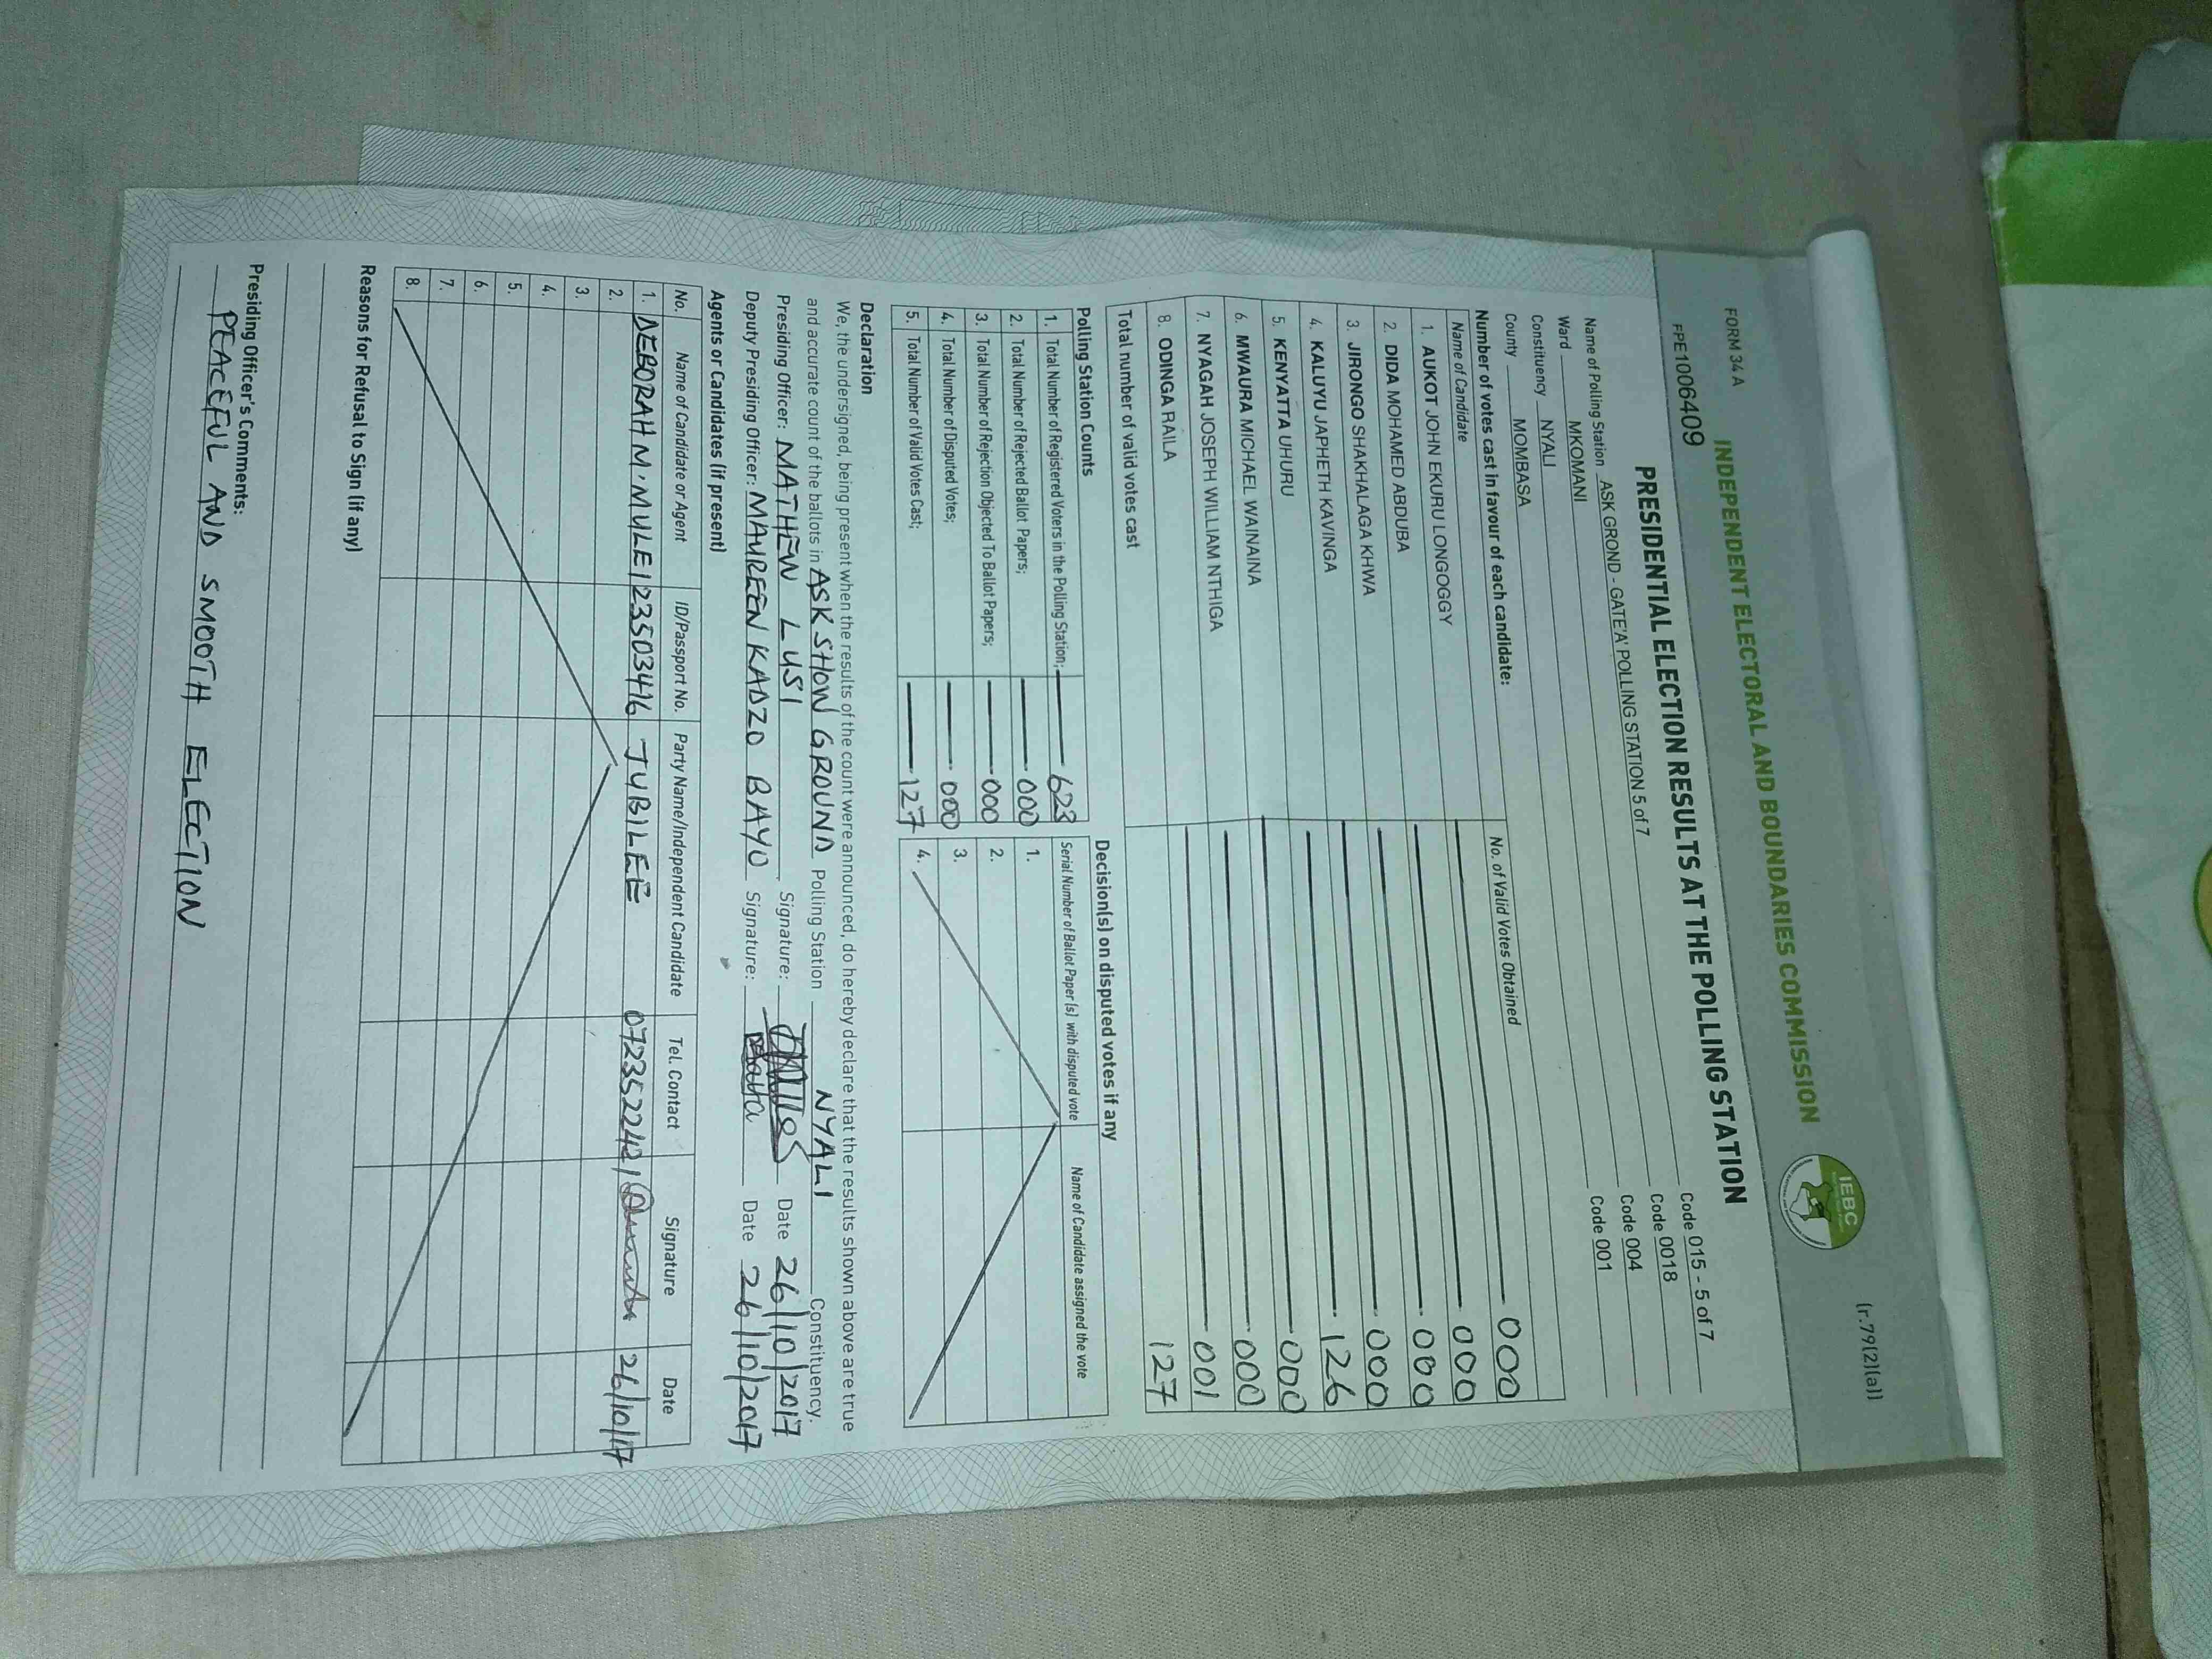 (r.79(2)(a))
FORM 34 A
INDEPENDENT ELECTORAL AND BOUNDARIES COMMISSION
IEBC
FPE1006409
PRESIDENTIAL ELECTION RESULTS AT THE POLLING STATION
Name of Polling Station ASK GROND - GATE'A' POLLING STATION 5 of 7 Code 015 - 5 of 7
Ward MKOMANI Code 0018
Constituency NYALI Code 004
County MOMBASA Code 001
Number of votes cast in favour of each candidate:
Name of Candidate No. of Valid Votes Obtained
1. AUKOT JOHN EKURU LONGOGGY 000
2. DIDA MOHAMED ABDUBA 000
3. JIRONGO SHAKHALAGA KHWA 000
4. KALUYU JAPHETH KAVINGA 000
5. KENYATTA UHURU 126
6. MWAURA MICHAEL WAINAINA 000
7. NYAGAH JOSEPH WILLIAM NTHIGA 000
8. ODINGA RAILA 001
Total number of valid votes cast 127
Polling Station Counts
1. Total Number of Registered Voters in the Polling Station; 623
2. Total Number of Rejected Ballot Papers; 000
3. Total Number of Rejection Objected To Ballot Papers; 000
4. Total Number of Disputed Votes; 000
5. Total Number of Valid Votes Cast; 127
Decision(s) on disputed votes if any
Serial Number of Ballot Paper (s) with disputed vote Name of Candidate assigned the vote
1.
2.
3.
4.
Declaration
We, the undersigned, being present when the results of the count were announced, do hereby declare that the results shown above are true
and accurate count of the ballots in ASK SHOW GROUND Polling Station NYALI Constituency.
Presiding Officer: MATHEW LUSI Signature: Date 26/10/2017
Deputy Presiding Officer: MAUREEN KADZO BAYO Signature: Date 26/10/2017
Agents or Candidates (if present)
No. Name of Candidate or Agent ID/Passport No. Party Name/Independent Candidate Tel. Contact Signature Date
1. DEBORAH M. MULEI 23503416 JUBILEE 0723522421 26/10/17
2.
3.
4.
5.
6.
7.
8.
Reasons for Refusal to Sign (if any)
Presiding Officer's Comments:
PEACEFUL AND SMOOTH ELECTION